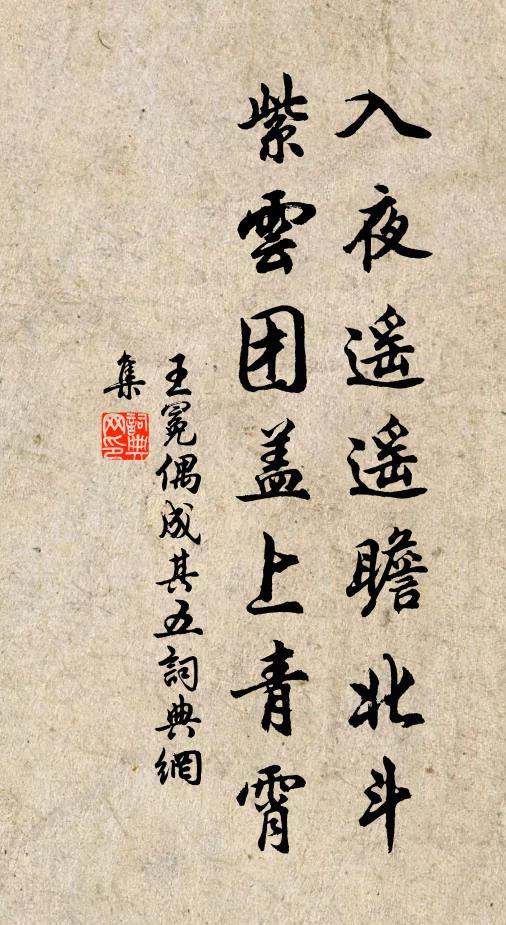 入夜遥遥瞻北斗
紫雲团盖上青霄
王冕偶成其五詞典網
集
詞典
网印